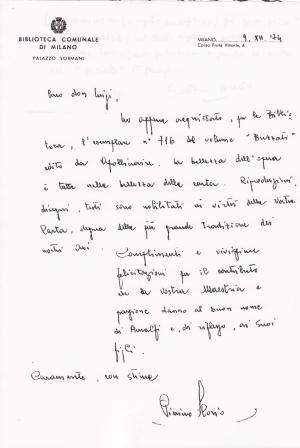 BIBLIOTECA COMUNALE
DI MILANO
PALAZZO SORMANI
MILANO, 9. XII. 74
Corso Porta Vittoria, 6
Caro don Luigi,
ho appena acquistato, per la Biblio
teca, l'esemplare n° 716 del volume "Buzzati"
edito da Apollinaire. La bellezza dell'opera
è tutta nella bellezza della carta. Riproduzioni,
disegni, testi sono nobilitati in virtù della vostra
Carta, degna della più grande tradizione dei
nostri Avi.
Complimenti e vivissime
felicitazioni per il contributo
che la vostra Maestria e
passione danno al buon nome
di Amalfi e, di riflesso, ai suoi
figli.
Caramente, con stima